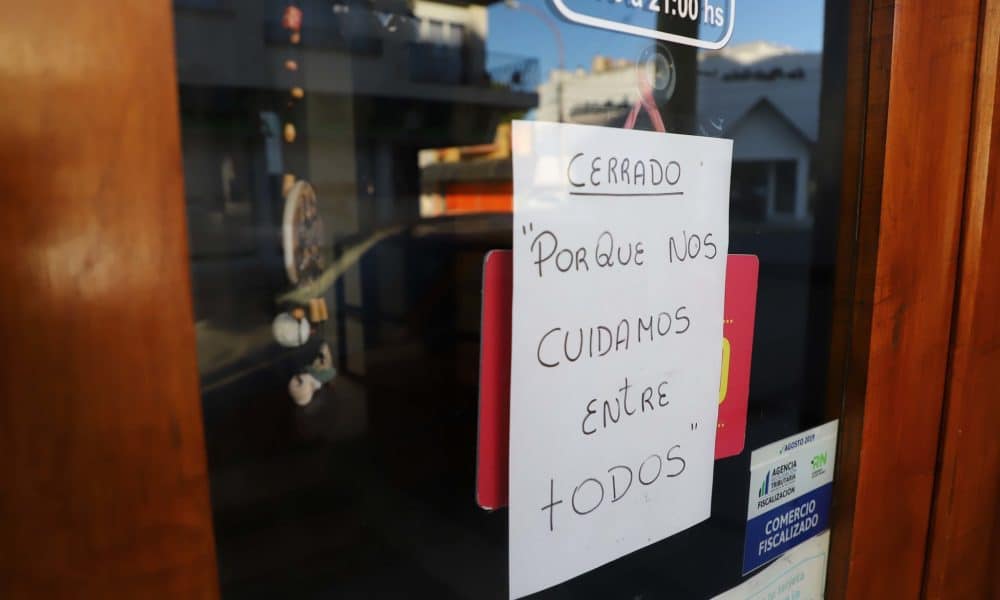 a 21:00 hs
CERRADO
"PORQUE NOS
CUIDAMOS
ENTRE
TODOS"
AGOSTO 2019
AGENCIA
TRIBUTARIA
FISCALIZACIÓN
RN
COMERCIO
FISCALIZADO